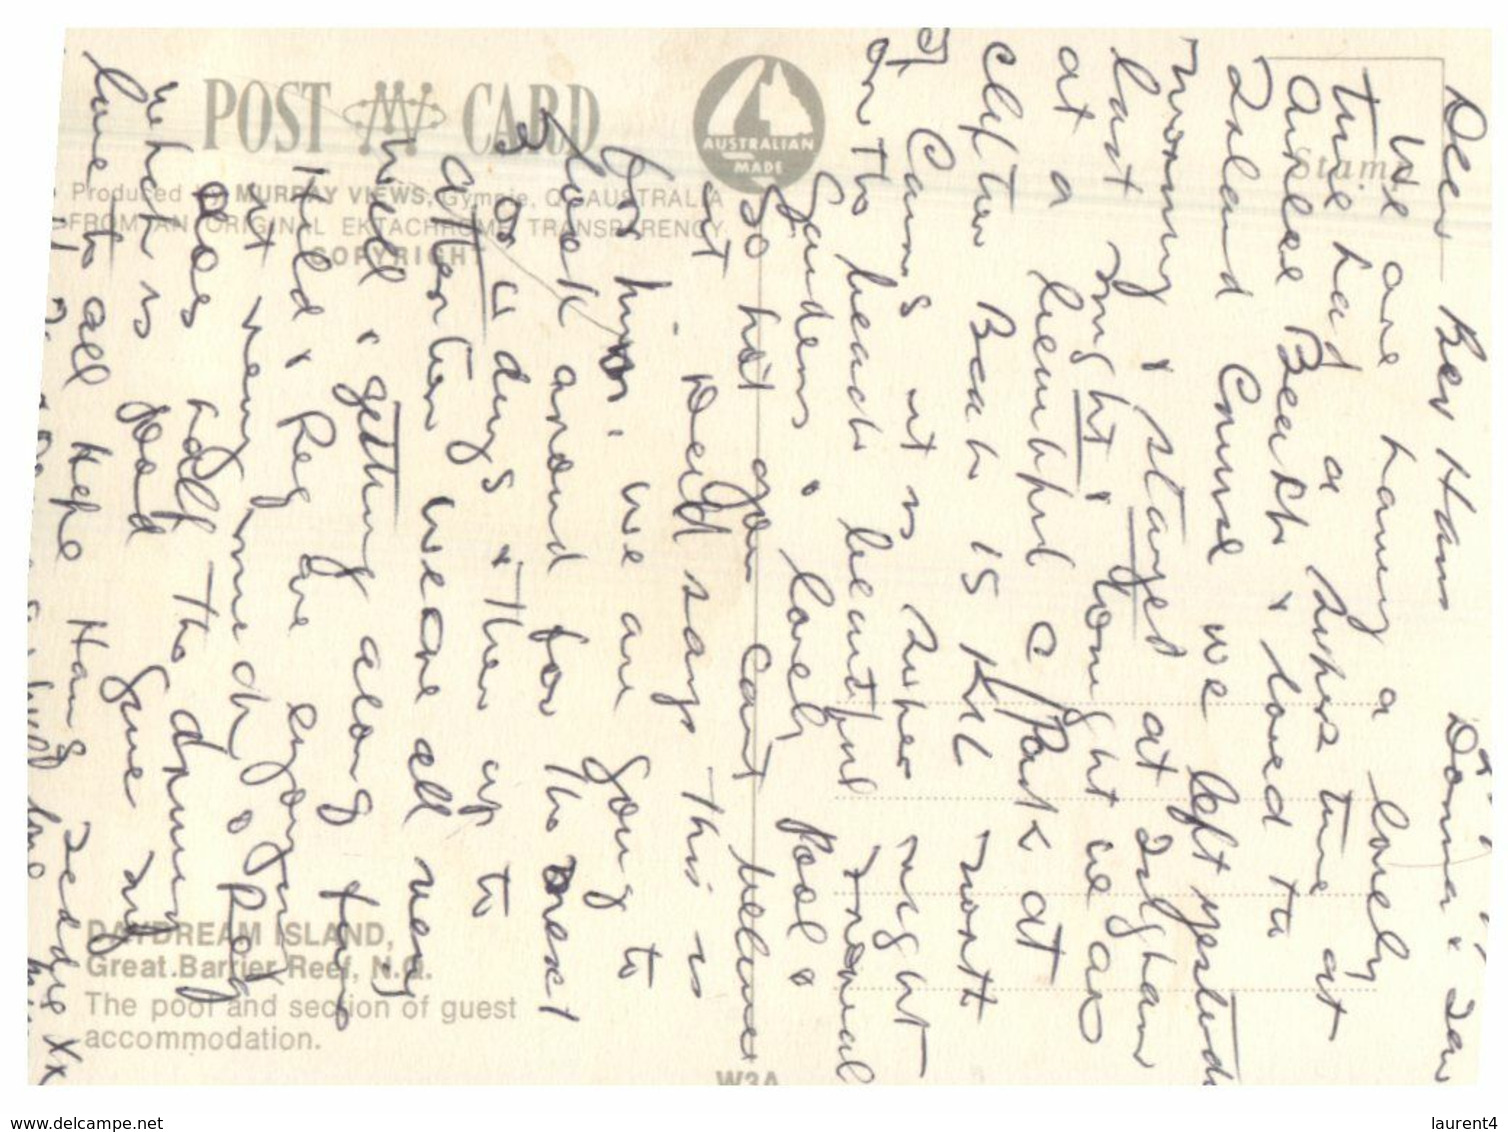 POST CARD
AUSTRALIAN
MADE
Stamp
Produced by MURRAY VIEWS, Gympie, Q. AUSTRALIA
FROM AN ORIGINAL EKTACHROME TRANSPARENCY
COPYRIGHT
DAYDREAM ISLAND,
Great Barrier Reef, N.Q.
The pool and section of guest
accommodation.
W3A
Dear Bev Ham Donna & Ian
We are having a lovely
time had a super time at
Airlee Beach & loved the
Island Cruise we left yesterday
morning & stayed at Ingham
last night & tonight we are
at a beautiful C/Park at
Clifton Beach 15 KM north
of Cairns it is super right
on the beach beautiful tropical
Gardens & lovely Pool &
so hot you cant believe
it Reid says this is
for him. we are going to
look around for the next
3 or 4 days & then up to
Atherton we are all very
well & getting along fine
Reid & Reg are enjoying
it very much & Reg
does half the driving
which is good gave my
love to all Hope Hang
love
xx